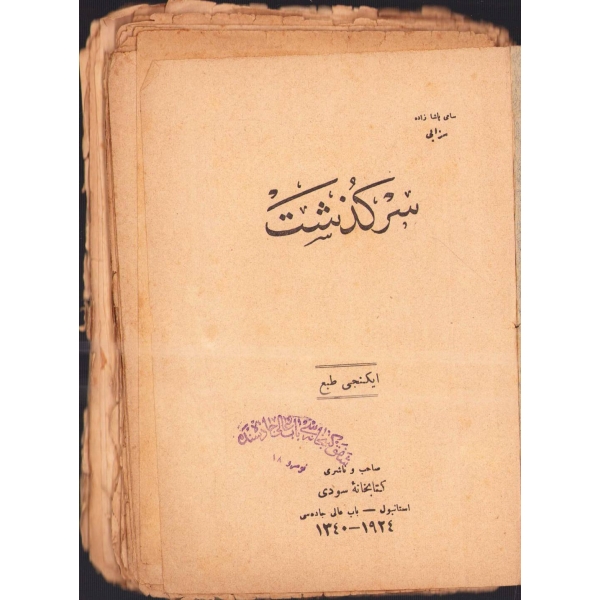 سامی پاشا زاده
سزائی
سرگذشت
ایکنجی طبع
نومرو ١٨
صاحب و ناشری
کتابخانۀ سودی
استانبول — باب عالی جاده سی
١٣٤٠–١٩٢٤